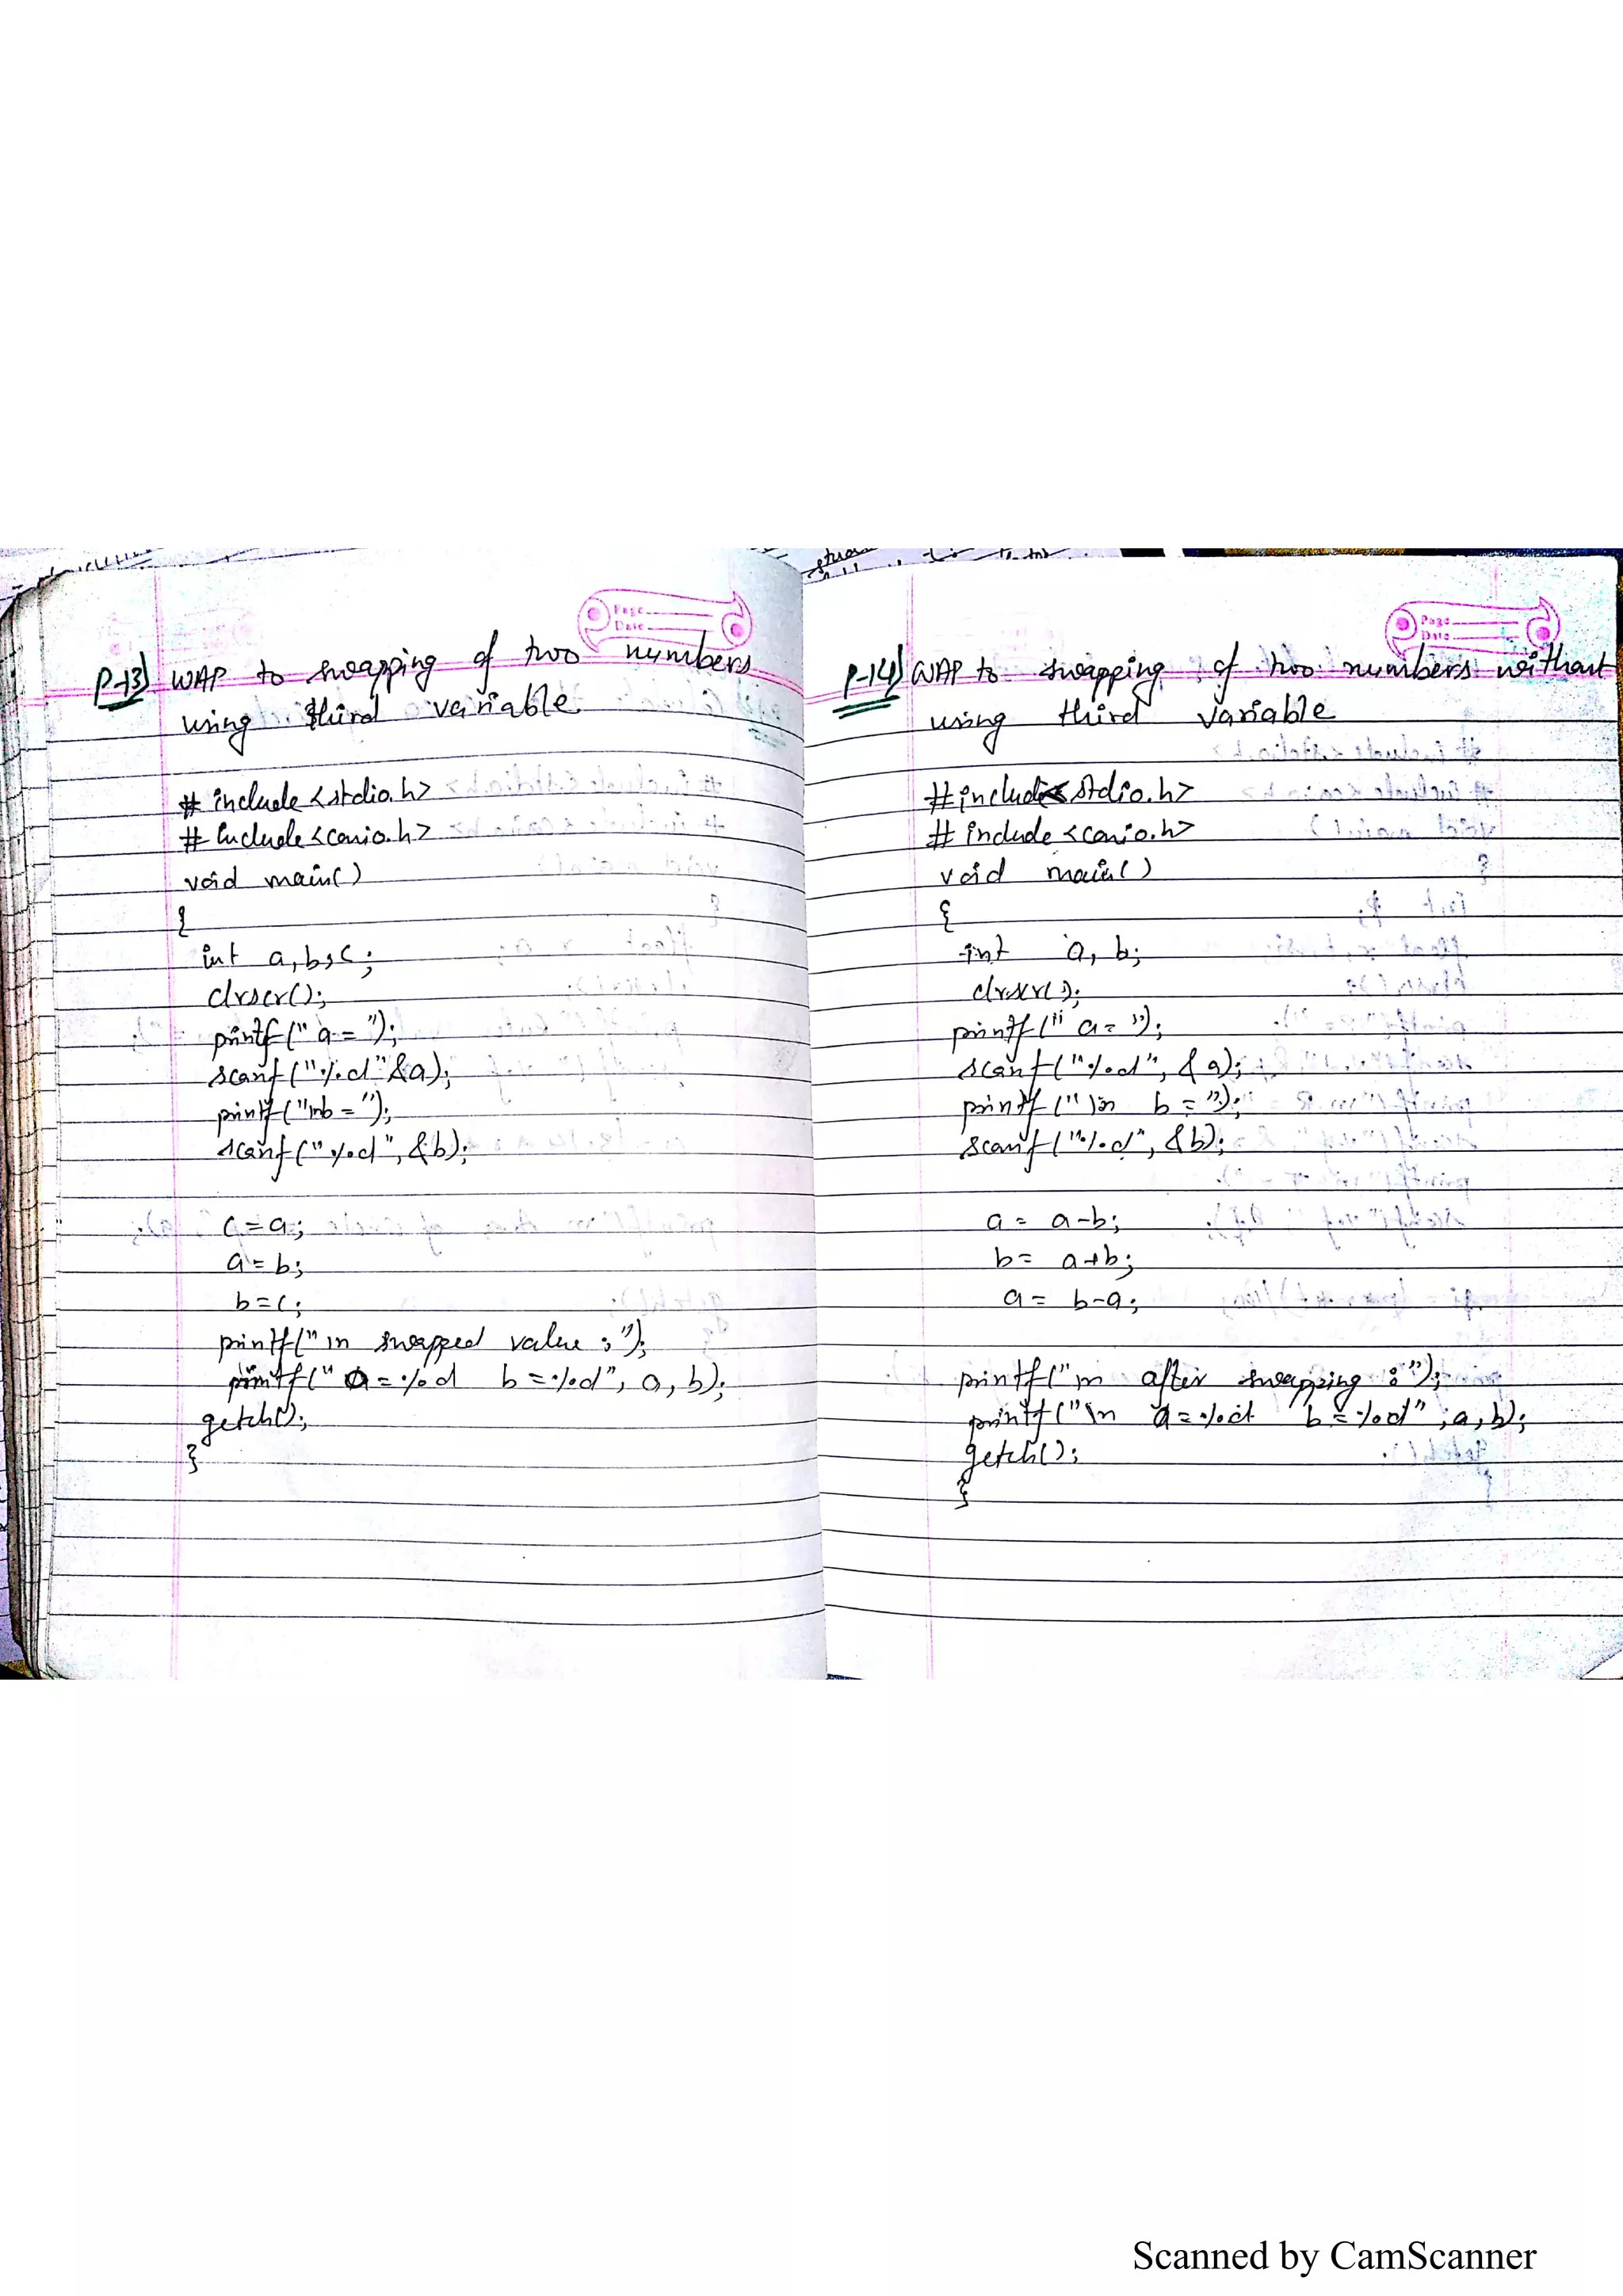 Page
Date
P-13) WAP to swapping of two numbers
using third variable
# include <stdio.h>
# include <conio.h>
void main()
{
int a, b, c;
clrscr();
printf(" a = ");
scanf("%d" &a);
printf("\nb = ");
scanf("%d", &b);
c = a;
a = b;
b = c;
printf("\n swapped value : ");
printf(" a = %d b = %d", a, b);
getch();
}
Page
Date
P-14) WAP to swapping of two numbers without
using third variable
#include <stdio.h>
# include <conio.h>
void main()
{
int a, b;
clrscr();
printf(" a = ");
scanf("%d", &a);
printf("\n b = ");
scanf("%d", &b);
a = a-b;
b = a+b;
a = b-a;
printf("\n after swapping : ");
printf("\n a = %d b = %d" ; a, b);
getch();
}
Scanned by CamScanner